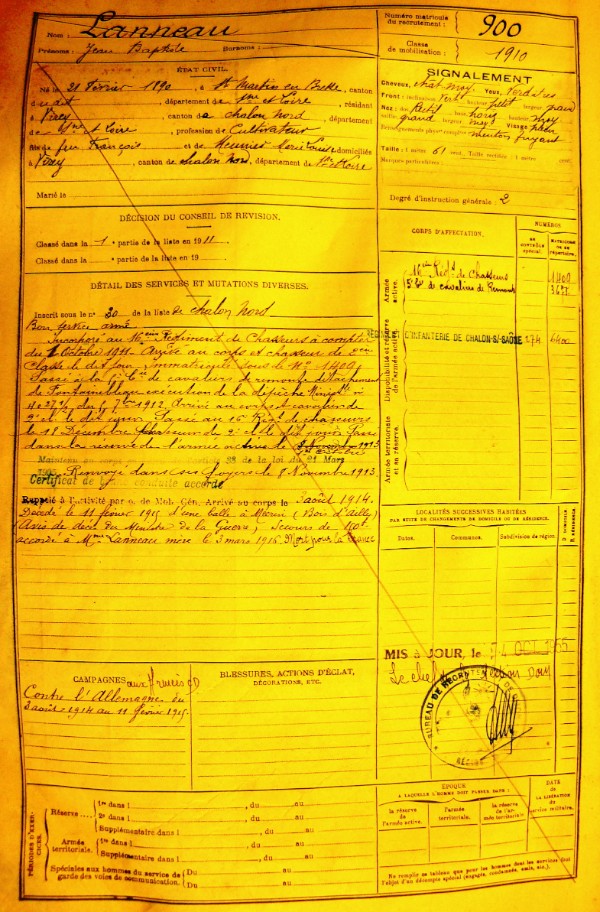 Nom : Lanneau
Prénoms : Jean Baptiste Surnoms :
Numéro matricule
du recrutement : 900
Classe
de mobilisation : 1910
ÉTAT CIVIL.
Né le 21 février 1890, à St Martin en Bresse, canton
dudit, département de Saône et Loire, résidant
à Virey, canton de Chalon Nord, département
de Saône et Loire, profession de Cultivateur
fils de feu François et de Meunier Marie Louise domiciliés
à Virey, canton de Chalon Nord, département de Sne et Loire
Marié le
SIGNALEMENT
Cheveux chat. moy. Yeux
Front : inclinaison vert. hauteur petit largeur grand
Nez : dos Rectil. base horiz. hauteur moy
saillie grand largeur moy Visage plein
Renseignements physion. complém. menton fuyant
Taille : 1 mètre 61 cent. Taille rectifiée : 1 mètre cent.
Marques particulières :
Degré d'instruction générale : 2
DÉCISION DU CONSEIL DE REVISION.
Classé dans la 1e partie de la liste en 1911
Classé dans la e partie de la liste en 19
DÉTAIL DES SERVICES ET MUTATIONS DIVERSES.
Inscrit sous le n° 20 de la liste de Chalon Nord
Bon service armé
Incorporé au 16ème Régiment de Chasseurs à compter
du 1 Octobre 1911. Arrivé au corps et chasseur de 2ème
Classe le dit jour. Immatriculé sous le N° 1409.
Passé à la 5e Cie de cavaliers de remonte détachement
de Fontainebleau exécution de la dépêche Minist
Arrivé au corps et cavalier de
2e cl le dit jour. Passé au 16 Régt de chasseurs
le 18 Décembre Chasseur de 2e cl le dit jour. Passé
dans la réserve de l'armée active
Maintenu au corps 33 de la loi du 21 Mars
1905. Renvoyé dans ses foyers le 8 Novembre 1913
Certificat de bonne conduite accordé
Rappelé à l'activité par o. de Mob. Gén. Arrivé au corps le 3 août 1914.
Décédé le 11 février 1915 d'une balle à (Bois d'Ailly)
Avis de décès du Ministre de la Guerre) Secours de 150f
accordé à Mme Lanneau mère le 3 mars 1916. Mort pour la France
CORPS D'AFFECTATION.
NUMÉROS
au contrôle spécial.
MATRICULE ou au répertoire.
Armée active.
16me Régt de Chasseurs 1409
5e Cie de cavaliers de Remonte 3677
Disponibilité et réserve de l'armée active.
RÉGIMENT D'INFANTERIE DE CHALON-S/-SAÔNE 174 6400
Armée territoriale et sa réserve.
LOCALITÉS SUCCESSIVES HABITÉES
PAR SUITE DE CHANGEMENTS DE DOMICILE OU DE RÉSIDENCE.
Dates.
Communes.
Subdivision de région.
D. DOMICILE R. RÉSIDENCE
MIS à JOUR, le 4 OCT 1965
BUREAU DE RECRUTEMENT DE
CAMPAGNES
Contre l'Allemagne du
3 août 1914 au 11 février 1915.
BLESSURES, ACTIONS D'ÉCLAT,
DÉCORATIONS, ETC.
PÉRIODES D'EXERCICES.
Réserve
1re dans l , du au
2e dans l , du au
Supplémentaire dans l , du au
Armée territoriale.
1re dans l , du au
Supplémentaire dans l , du au
Spéciales aux hommes du service de garde des voies de communication.
Du au
Du au
ÉPOQUE
A LAQUELLE L'HOMME DOIT PASSER DANS :
la réserve de l'armée active.
l'armée territoriale.
la réserve de l'armée territoriale
DATE
DE LA LIBÉRATION
du service militaire.
Ne remplir ce tableau que pour les hommes dont les services font
l'objet d'un décompte spécial (engagés, condamnés, omis, etc.).